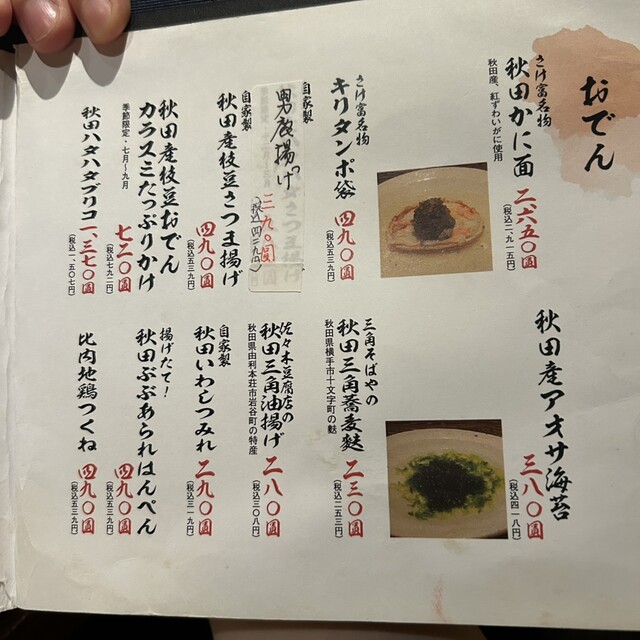 おでん
さけ富名物
秋田かに面
秋田産、紅ずわいがに使用
二、六五〇圓
(税込二、九一五円)
さけ富名物
キリタンポ袋
四九〇圓
(税込五三九円)
自家製
男鹿揚げ
三九〇圓
(税込四二九円)
自家製
秋田産枝豆さつま揚げ
四九〇圓
(税込五三九円)
秋田産枝豆おでん
カラスミたっぷりかけ
季節限定・七月〜九月
七二〇圓
(税込七九二円)
秋田ハタハタブリコ
一、三七〇圓
(税込一、五〇七円)
秋田産アオサ海苔
三八〇圓
(税込四一八円)
三角そばやの
秋田三角蕎麦麩
秋田県横手市十文字町の麩
二三〇圓
(税込二五三円)
佐々木豆腐店の
秋田三角油揚げ
秋田県由利本荘市岩谷町の特産
二八〇圓
(税込三〇八円)
自家製
秋田いわしつみれ
二九〇圓
(税込三一九円)
揚げたて!
秋田ぶぶあられはんぺん
四九〇圓
(税込五三九円)
比内地鶏つくね
四九〇圓
(税込五三九円)